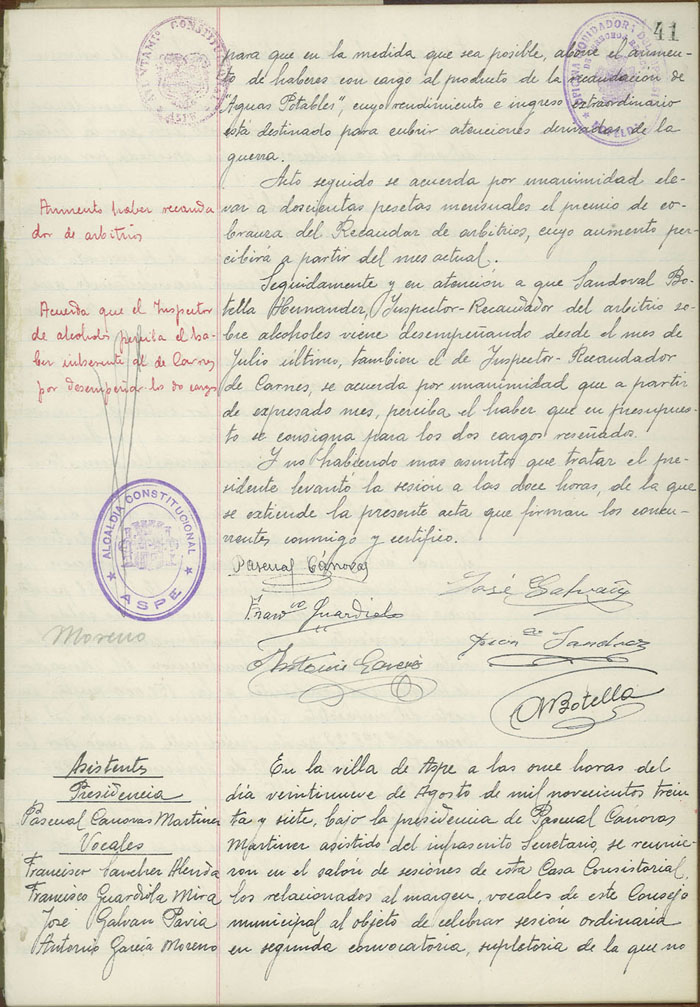 41
AYUNTAMTO CONSTITUCIONAL
ASPE
para que en la medida que sea posible, abone el aumen-
to de haberes con cargo al producto de la recaudacion de
"Aguas Potables", cuyo rendimiento e ingreso extraordinario
está destinado para cubrir atenciones derivadas de la
guerra.
Aumento haber recauda
dor de arbitrios
Acto seguido se acuerda por unanimidad ele-
var a doscientas pesetas mensuales el premio de co-
branza del Recaudar de arbitrios, cuyo aumento per-
cibirá a partir del mes actual.
Acuerda que el Inspector
de alcoholes perciba el ha-
ber inherente al de Carnes
por desempeñar los do cargos
Seguidamente y en atención a que Sandoval Bo-
tella Hernander, Inspector-Recaudador del arbitrio so-
bre alcoholes viene desempeñando desde el mes de
Julio último, tambien el de Inspector-Recaudador
de Carnes, se acuerda por unanimidad que a partir
de expresado mes, perciba el haber que en presupues-
to se consigna para los dos cargos reseñados.
Y no habiendo mas asuntos que tratar el pre-
sidente levantó la sesión a las doce horas, de la que
se extiende la presente acta que firman los concu-
rrentes conmigo y certifico.
ALCALDIA CONSTITUCIONAL
ASPE
Pascual Cánovas
José Galvañ
Franco Guardiola
Antonio García
Moreno
Botella
Asistents
Presidencia
Pascual Canovas Martiner
Vocales
Francisco Sancher Alenda
Francisco Guardiola Mira
José Galvan Pavia
Antonio García Moreno
En la villa de Aspe a las once horas del
día veintinueve de Agosto de mil novecientos trein-
ta y siete, bajo la presidencia de Pascual Canovas
Martiner asistido del infrascrito Secretario, se reunie-
ron en el salón de sesiones de esta Casa Consistorial,
los relacionados al margen, vocales de este Consejo
municipal al objeto de celebrar sesion ordinaria
en segunda convocatoria, supletoria de la que no